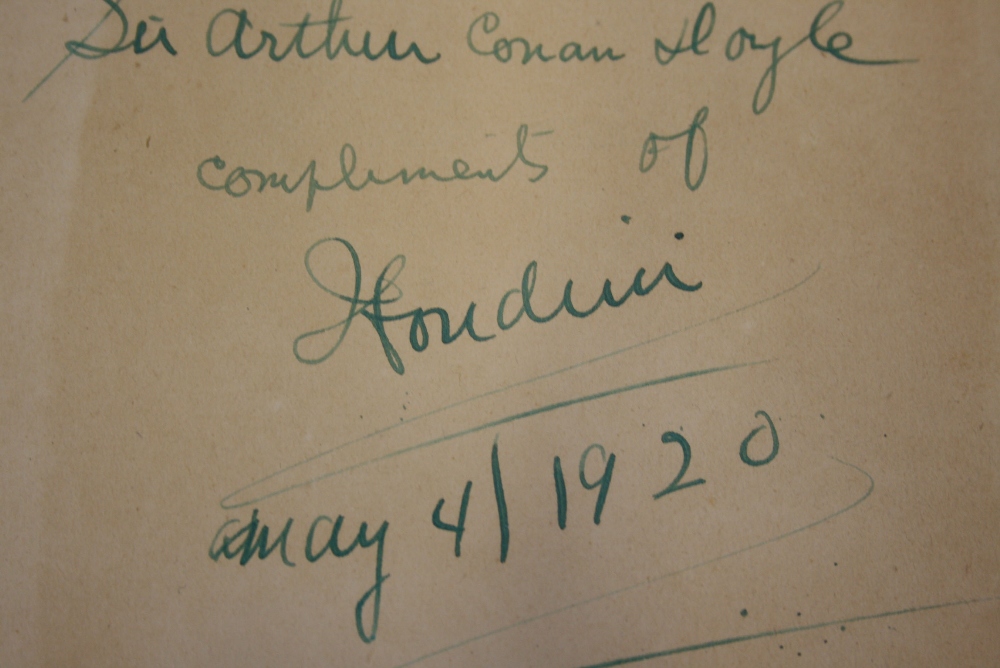 Sir Arthur Conan Doyle
compliments of
Houdini
May 4/1920